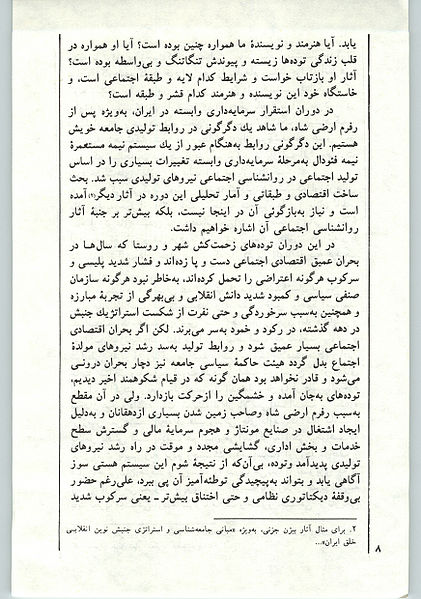 یابد. آیا هنرمند و نویسندهٔ ما همواره چنین بوده است؟ آیا او همواره در
قلب زندگی توده‌ها زیسته و پیوندش تنگاتنگ و بی‌واسطه بوده است؟
آثار او بازتاب خواست و شرایط کدام لایه و طبقهٔ اجتماعی است، و
خاستگاه خود این نویسنده و هنرمند کدام قشر و طبقه است؟
در دوران استقرار سرمایه‌داری وابسته در ایران، به‌ویژه پس از
رفرم ارضی شاه، ما شاهد یك دگرگونی در روابط تولیدی جامعه خویش
هستیم. این دگرگونی روابط به‌هنگام عبور از یك سیستم نیمه مستعمرهٔ
نیمه فئودال به‌مرحلهٔ سرمایه‌داری وابسته تغییرات بسیاری را در اساس
تولید اجتماعی در روانشناسی اجتماعی نیروهای تولیدی سبب شد. بحث
ساخت اقتصادی و طبقاتی و آمار تحلیلی این دوره در آثار دیگر(۲) آمده
است و نیاز به‌بازگوئی آن در اینجا نیست، بلکه بیش‌تر بر جنبهٔ آثار
روانشناسی اجتماعی آن اشاره خواهیم داشت.
در این دوران توده‌های زحمت‌کش شهر و روستا که سال‌ها در
بحران عمیق اقتصادی اجتماعی دست و پا زده‌اند و فشار شدید پلیسی و
سرکوب هرگونه اعتراضی را تحمل کرده‌اند، به‌خاطر نبود هرگونه سازمان
صنفی سیاسی و کمبود شدید دانش انقلابی و بی‌بهرگی از تجربهٔ مبارزه
و همچنین به‌سبب سرخوردگی و حتی نفرت از شکست استراتژیك جنبش
در دهه گذشته، در رکود و خمود به‌سر می‌برند. لکن اگر بحران اقتصادی
اجتماعی بسیار عمیق شود و روابط تولید به‌سد رشد نیروهای مولدهٔ
اجتماع بدل گردد هیئت حاکمهٔ سیاسی جامعه نیز دچار بحران درونی
می‌شود و قادر نخواهد بود همان گونه که در قیام شکوهمند اخیر دیدیم،
توده‌های به‌جان آمده و خشمگین را ازحرکت بازدارد. ولی در آن مقطع
به‌سبب رفرم ارضی شاه وصاحب زمین شدن بسیاری ازدهقانان و به‌دلیل
ایجاد اشتغال در صنایع مونتاژ و هجوم سرمایهٔ مالی و گسترش سطح
خدمات و بخش اداری، گشایشی مجدد و موقت در راه رشد نیروهای
تولیدی پدیدآمد وتوده، بی‌آن‌که از نتیجهٔ شوم این سیستم هستی سوز
آگاهی یابد و بتواند به‌پیچیدگی توطئه‌آمیز آن پی ببرد، علی‌رغم حضور
بی‌وقفهٔ دیکتاتوری نظامی و حتی اختناق بیش‌تر ـ یعنی سرکوب شدید
۲. برای مثال آثار بیژن جزنی، به‌ویژه «مبانی جامعه‌شناسی و استراتژی جنبش نوین انقلابی
خلق ایران»...
۸